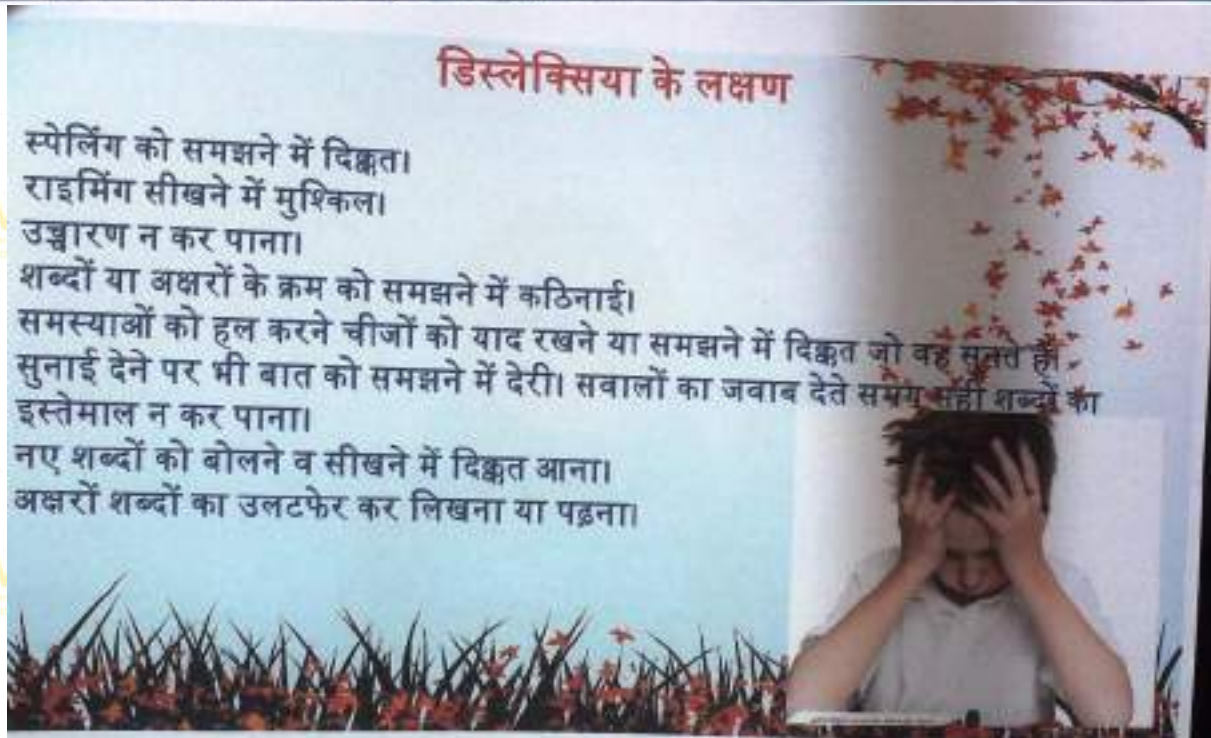 डिस्लेक्सिया के लक्षण
स्पेलिंग को समझने में दिक्कत।
राइमिंग सीखने में मुश्किल।
उच्चारण न कर पाना।
शब्दों या अक्षरों के क्रम को समझने में कठिनाई।
समस्याओं को हल करने चीजों को याद रखने या समझने में दिक्कत जो वह सुनते हैं।
सुनाई देने पर भी बात को समझने में देरी। सवालों का जवाब देते समय सही शब्दों का
इस्तेमाल न कर पाना।
नए शब्दों को बोलने व सीखने में दिक्कत आना।
अक्षरों शब्दों का उलटफेर कर लिखना या पढ़ना।